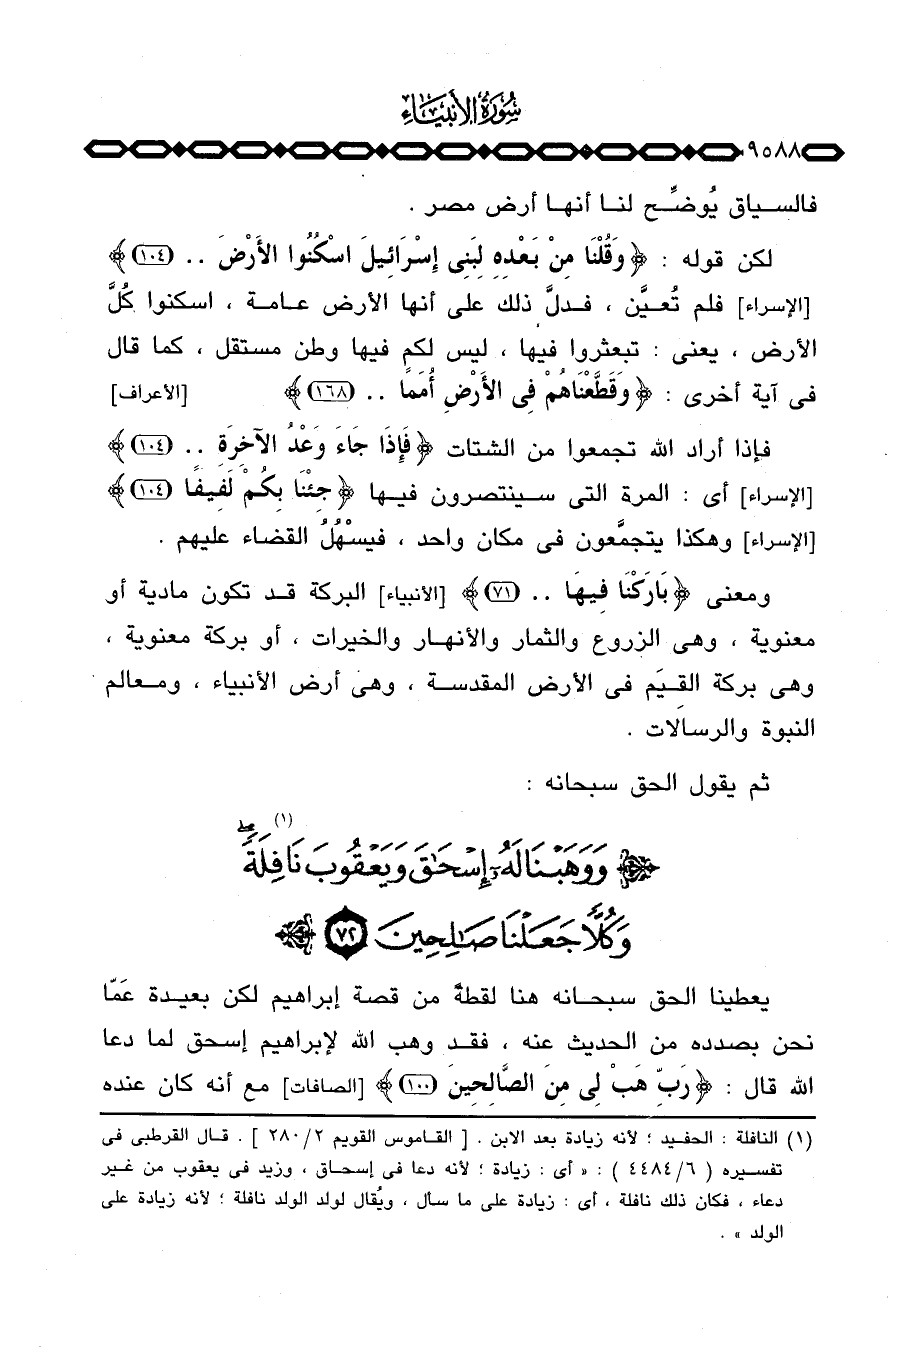 سُورَةُ الأَنبِيَاءِ
٩٥٨٨
فالسياق يُوضِّح لنا أنها أرض مصر .
لكن قوله : ﴿ وَقُلْنَا مِنْ بَعْدِهِ لِبَنِى إِسْرَائِيلَ اسْكُنُوا الأَرْضَ .. (١٠٤) ﴾
[الإسراء] فلم تُعيَّن ، فدلَّ ذلك على أنها الأرض عامة ، اسكنوا كُلَّ
الأرض ، يعنى : تبعثروا فيها ، ليس لكم فيها وطن مستقل ، كما قال
فى آية أخرى : ﴿ وَقَطَّعْنَاهُمْ فِى الأَرْضِ أُمَمًا .. (١٦٨) ﴾ [الأعراف]
فإذا أراد الله تجمعوا من الشتات ﴿ فَإِذَا جَاءَ وَعْدُ الآخِرَةِ .. (١٠٤) ﴾
[الإسراء] أى : المرة التى سينتصرون فيها ﴿ جِئْنَا بِكُمْ لَفِيفًا (١٠٤) ﴾
[الإسراء] وهكذا يتجمَّعون فى مكان واحد ، فيسْهُلُ القضاء عليهم .
ومعنى ﴿ بَارَكْنَا فِيهَا .. (٧١) ﴾ [الأنبياء] البركة قد تكون مادية أو
معنوية ، وهى الزروع والثمار والأنهار والخيرات ، أو بركة معنوية ،
وهى بركة القيَم فى الأرض المقدسة ، وهى أرض الأنبياء ، ومعالم
النبوة والرسالات .
ثم يقول الحق سبحانه :
﴿ وَوَهَبْنَا لَهُۥٓ إِسْحَٰقَ وَيَعْقُوبَ نَافِلَةً ۖ (١)
وَكُلًّا جَعَلْنَا صَٰلِحِينَ (٧٢) ﴾
يعطينا الحق سبحانه هنا لقطةً من قصة إبراهيم لكن بعيدة عَمَّا
نحن بصدده من الحديث عنه ، فقد وهب الله لإبراهيم إسحق لما دعا
الله قال : ﴿ رَبِّ هَبْ لِى مِنَ الصَّالِحِينَ (١٠٠) ﴾ [الصافات] مع أنه كان عنده
(١) النافلة : الحفيد ؛ لأنه زيادة بعد الابن . [ القاموس القويم ٢/ ٢٨٠ ] . قال القرطبى فى
تفسيره ( ٦/ ٤٤٨٤ ) : « أى : زيادة ؛ لأنه دعا فى إسحاق ، وزيد فى يعقوب من غير
دعاء ، فكان ذلك نافلة ، أى : زيادة على ما سأل ، ويُقال لولد الولد نافلة ؛ لأنه زيادة على
الولد » .